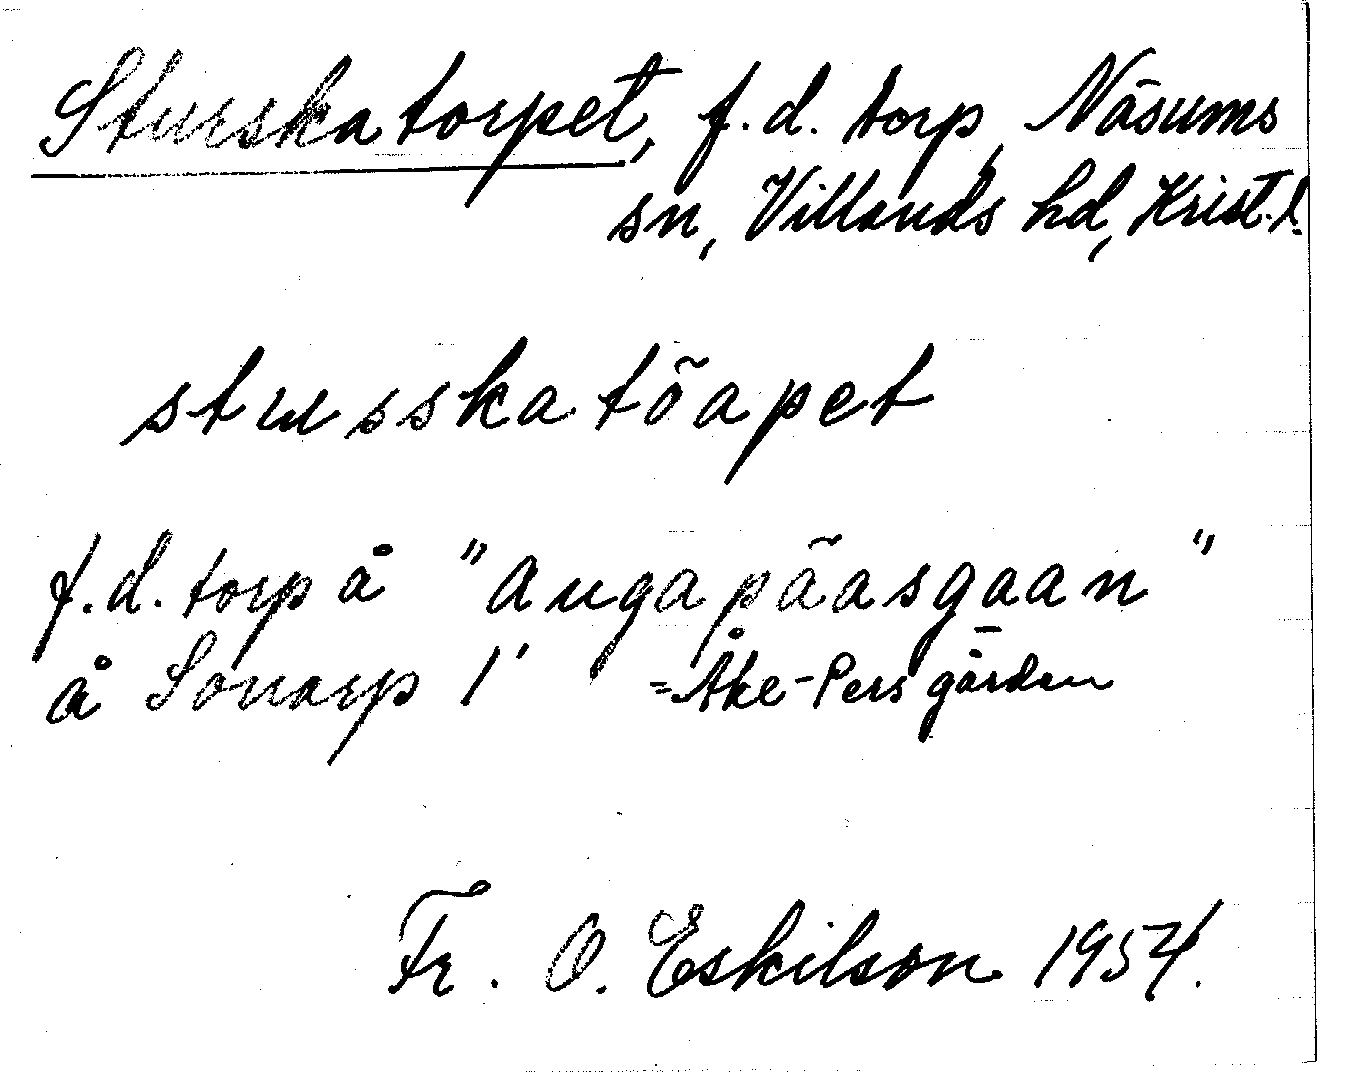 Sturskatorpet, f.d. torp, Näsums
sn, Villands hd, Krist.l.
stusskatõapet
f.d. torp å "augapãasgaan"
å Sonarp 1' =Åke-Persgården
Fr. O. Eskilson 1954.